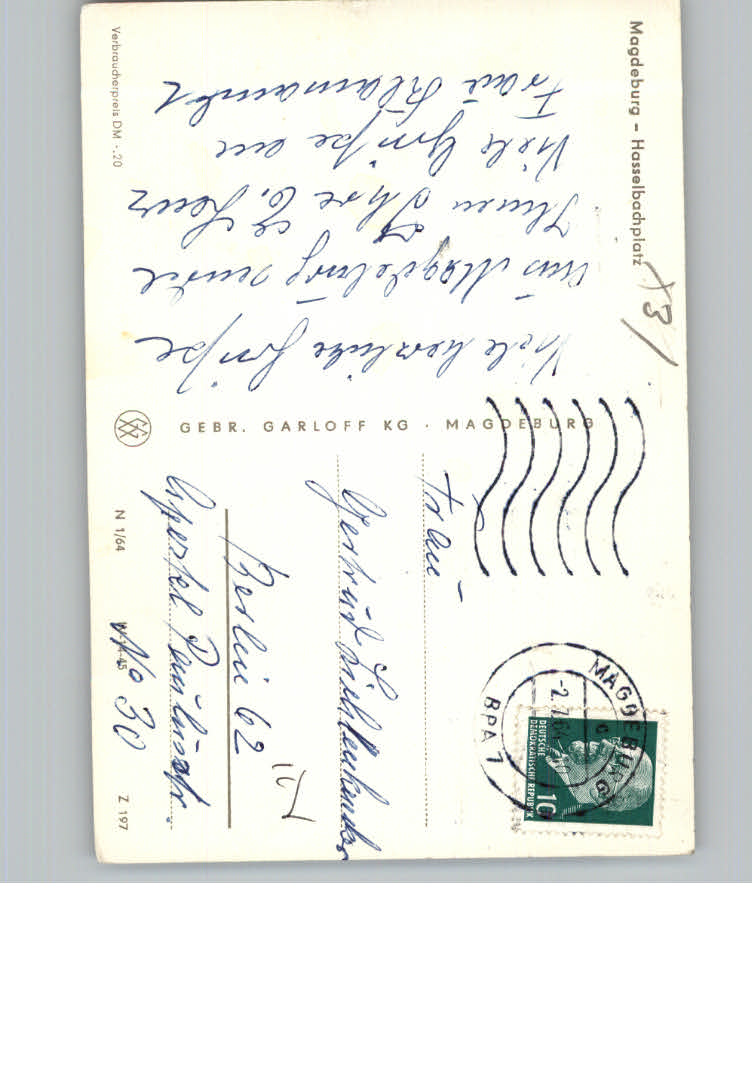 Magdeburg - Hasselbachplatz
Viele herzliche Grüße
aus Magdeburg sendet
Ihnen Ihre E.
Viele Grüße an
Frau
Verbraucherpreis DM -.20
GEBR. GARLOFF KG · MAGDEBURG
MAGDEBURG
BPA 1
c
-2.7.64
DEUTSCHE
DEMOKRATISCHE REPUBLIK
10
Frau
Gertrud
Berlin 62
Apostel Paulusstr.
No 30
N 1/64
Z 197